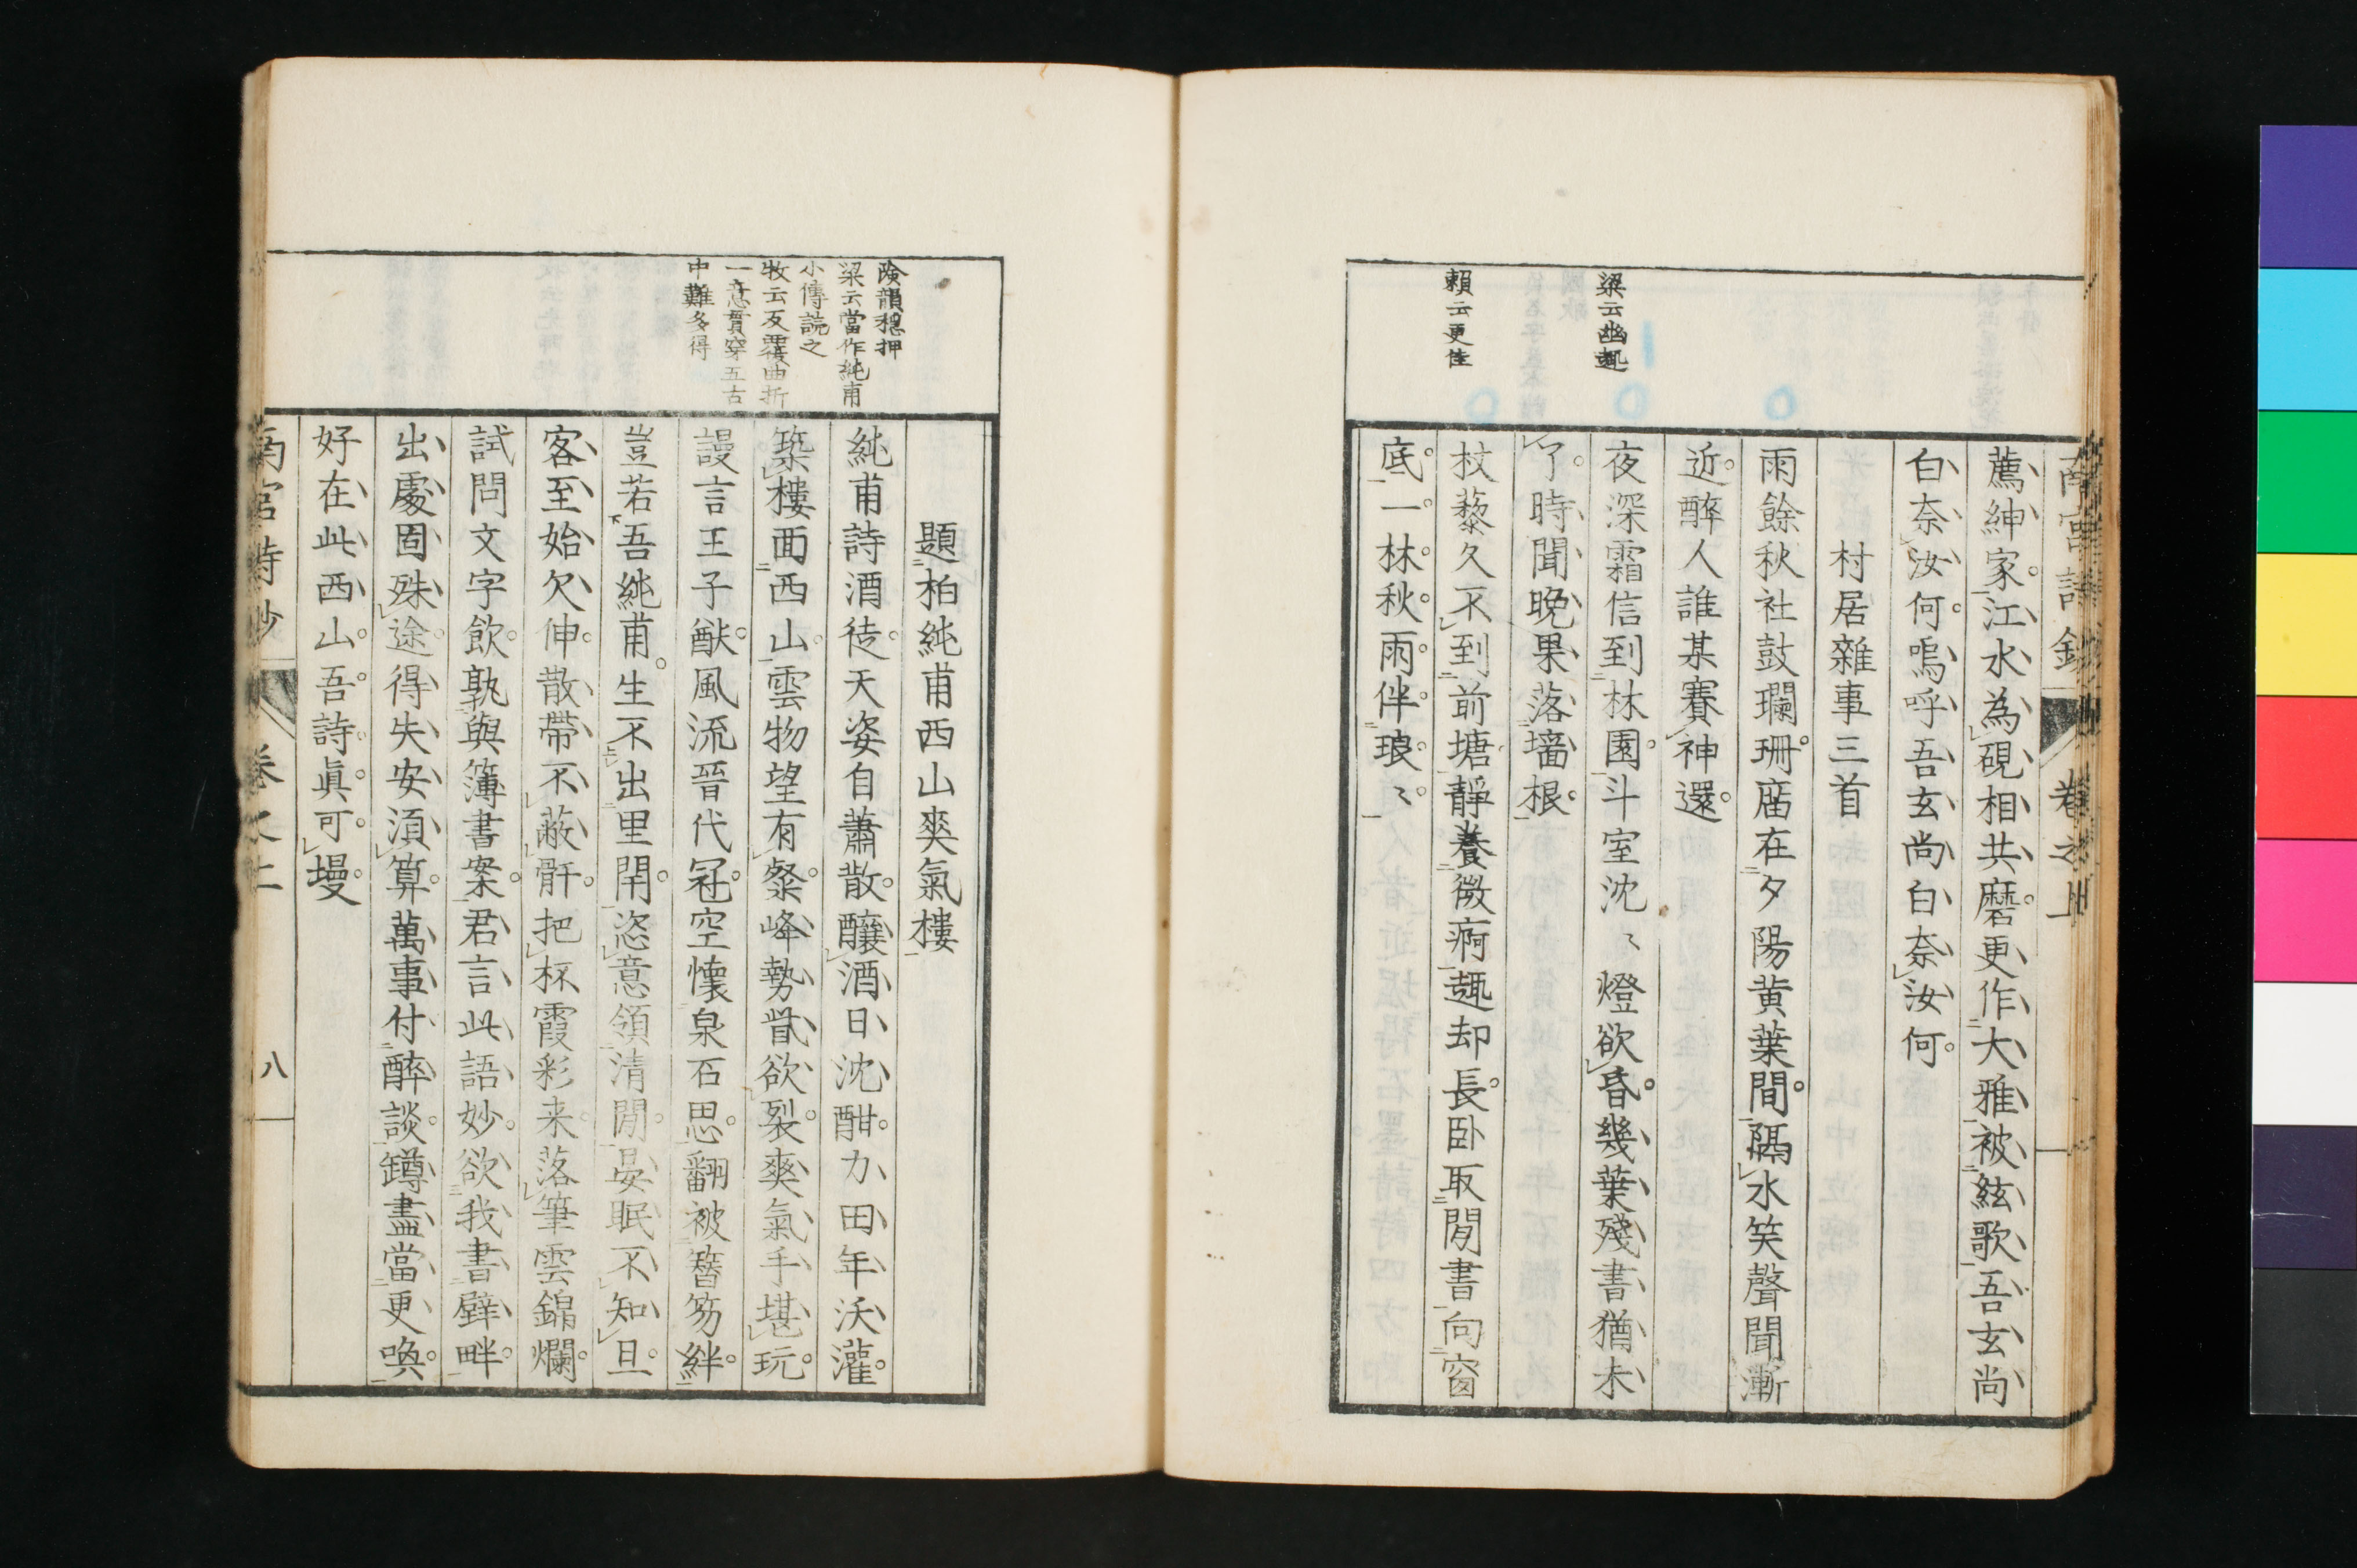 南宮詩鈔
卷之上
薦紳家江水為硯相共磨更作大雅被絃歌吾玄尚
白奈汝何嗚呼吾玄尚白奈汝何
村居雜事三首
雨餘秋社鼓斕珊庿在夕陽黄葉間隔水笑聲聞漸
近醉人誰某賽神還
梁云幽趣
夜深霜信到林園斗室沈〻燈欲昏幾葉殘書猶未
了時聞晩果落墻根
賴云更佳
杖藜久不到前塘靜養微痾趣却長卧取閒書向窗
底一林秋雨伴琅〻
題柏純甫西山爽氣樓
険韻穩押
梁云當作純甫
小傳読之
牧云反覆曲折
一意貫穿五古
中難多得
純甫詩酒徒天姿自蕭散釀酒日沈酣力田年沃灌
築樓面西山雲物望有粲峰勢眥欲裂爽氣手堪玩
謾言王子猷風流晉代冠空懷泉石思翻被簪笏絆
豈若吾純甫生不出里閈恣意領清閒晏眠不知旦
客至始欠伸散帶不蔽骭把杯霞彩来落筆雲錦爛
試問文字飲孰與簿書案君言此語妙欲我書壁畔
出處固殊途得失安湏算萬事付醉談罇盡當更喚
好在此西山吾詩眞可墁
南宮詩鈔
卷之上
八